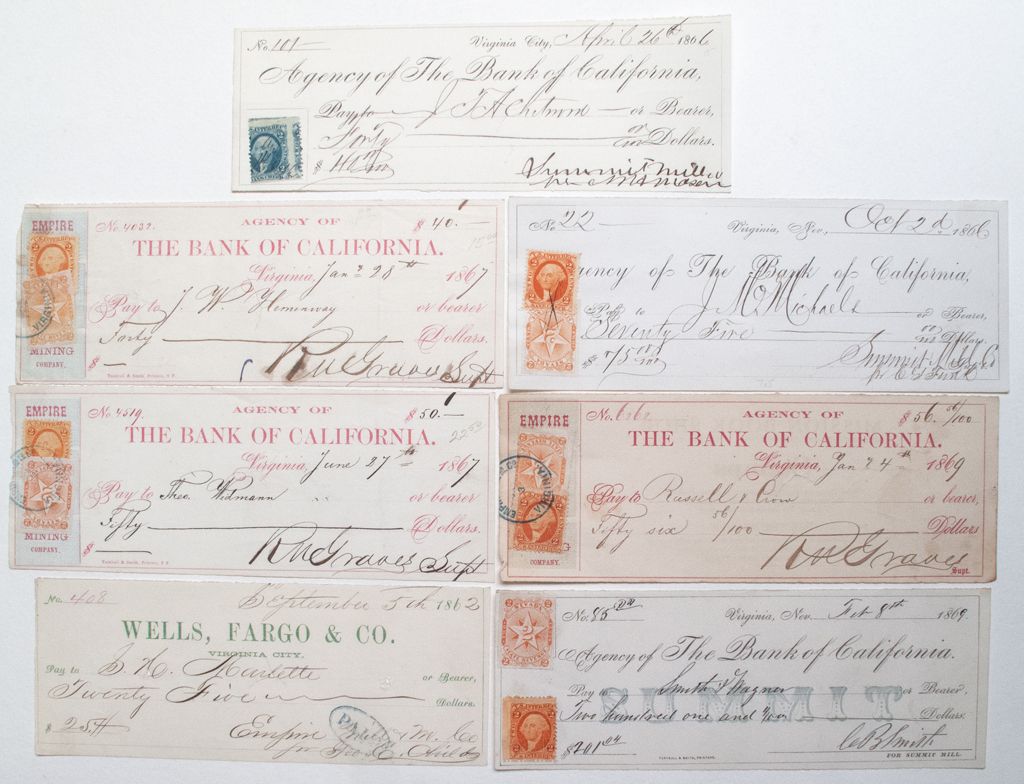 No. 101
Virginia City, April 26th 1866
Agency of The Bank of California,
Pay to J. T. or Bearer,
Forty Dollars.
$ 40 00/100
Summit Mill
EMPIRE
MINING
COMPANY.
No. 4032.
AGENCY OF
$ 40.—
THE BANK OF CALIFORNIA.
Virginia, Jany 28th 1867
Pay to J. W. Hemenway or bearer
Forty Dollars.
$ —
R M Graves Supt
No. 22
Virginia, Nev., Oct 2d 1866
Agency of The Bank of California,
Pay to J McMichaels or Bearer,
Seventy Five 00/100 Dollars.
$ 75 00/100
Summit M. Co
EMPIRE
MINING
COMPANY.
No. 4519.
AGENCY OF
$ 50.—
22 50
THE BANK OF CALIFORNIA.
Virginia, June 27th 1867
Pay to Theo. Widmann or bearer
Fifty Dollars.
R M Graves Supt
EMPIRE
COMPANY.
VIRGINIA
No. 6262
AGENCY OF
$ 56. 56/100
THE BANK OF CALIFORNIA.
Virginia, Jan 24th 1869
Pay to Russell & Crow or bearer,
Fifty six 56/100 Dollars
R M Graves
Supt.
No. 408
September 5th 1862
WELLS, FARGO & CO.
VIRGINIA CITY.
Pay to or Bearer,
Twenty Five Dollars.
$ 25
Empire M. Co
PAID
No. 85
Virginia, Nev. Feb 8th 1869
Agency of The Bank of California.
Pay to Smith & Wagner or Bearer,
SUMMIT
Two hundred one and Dollars.
$201 04
C B Smith
FOR SUMMIT MILL.